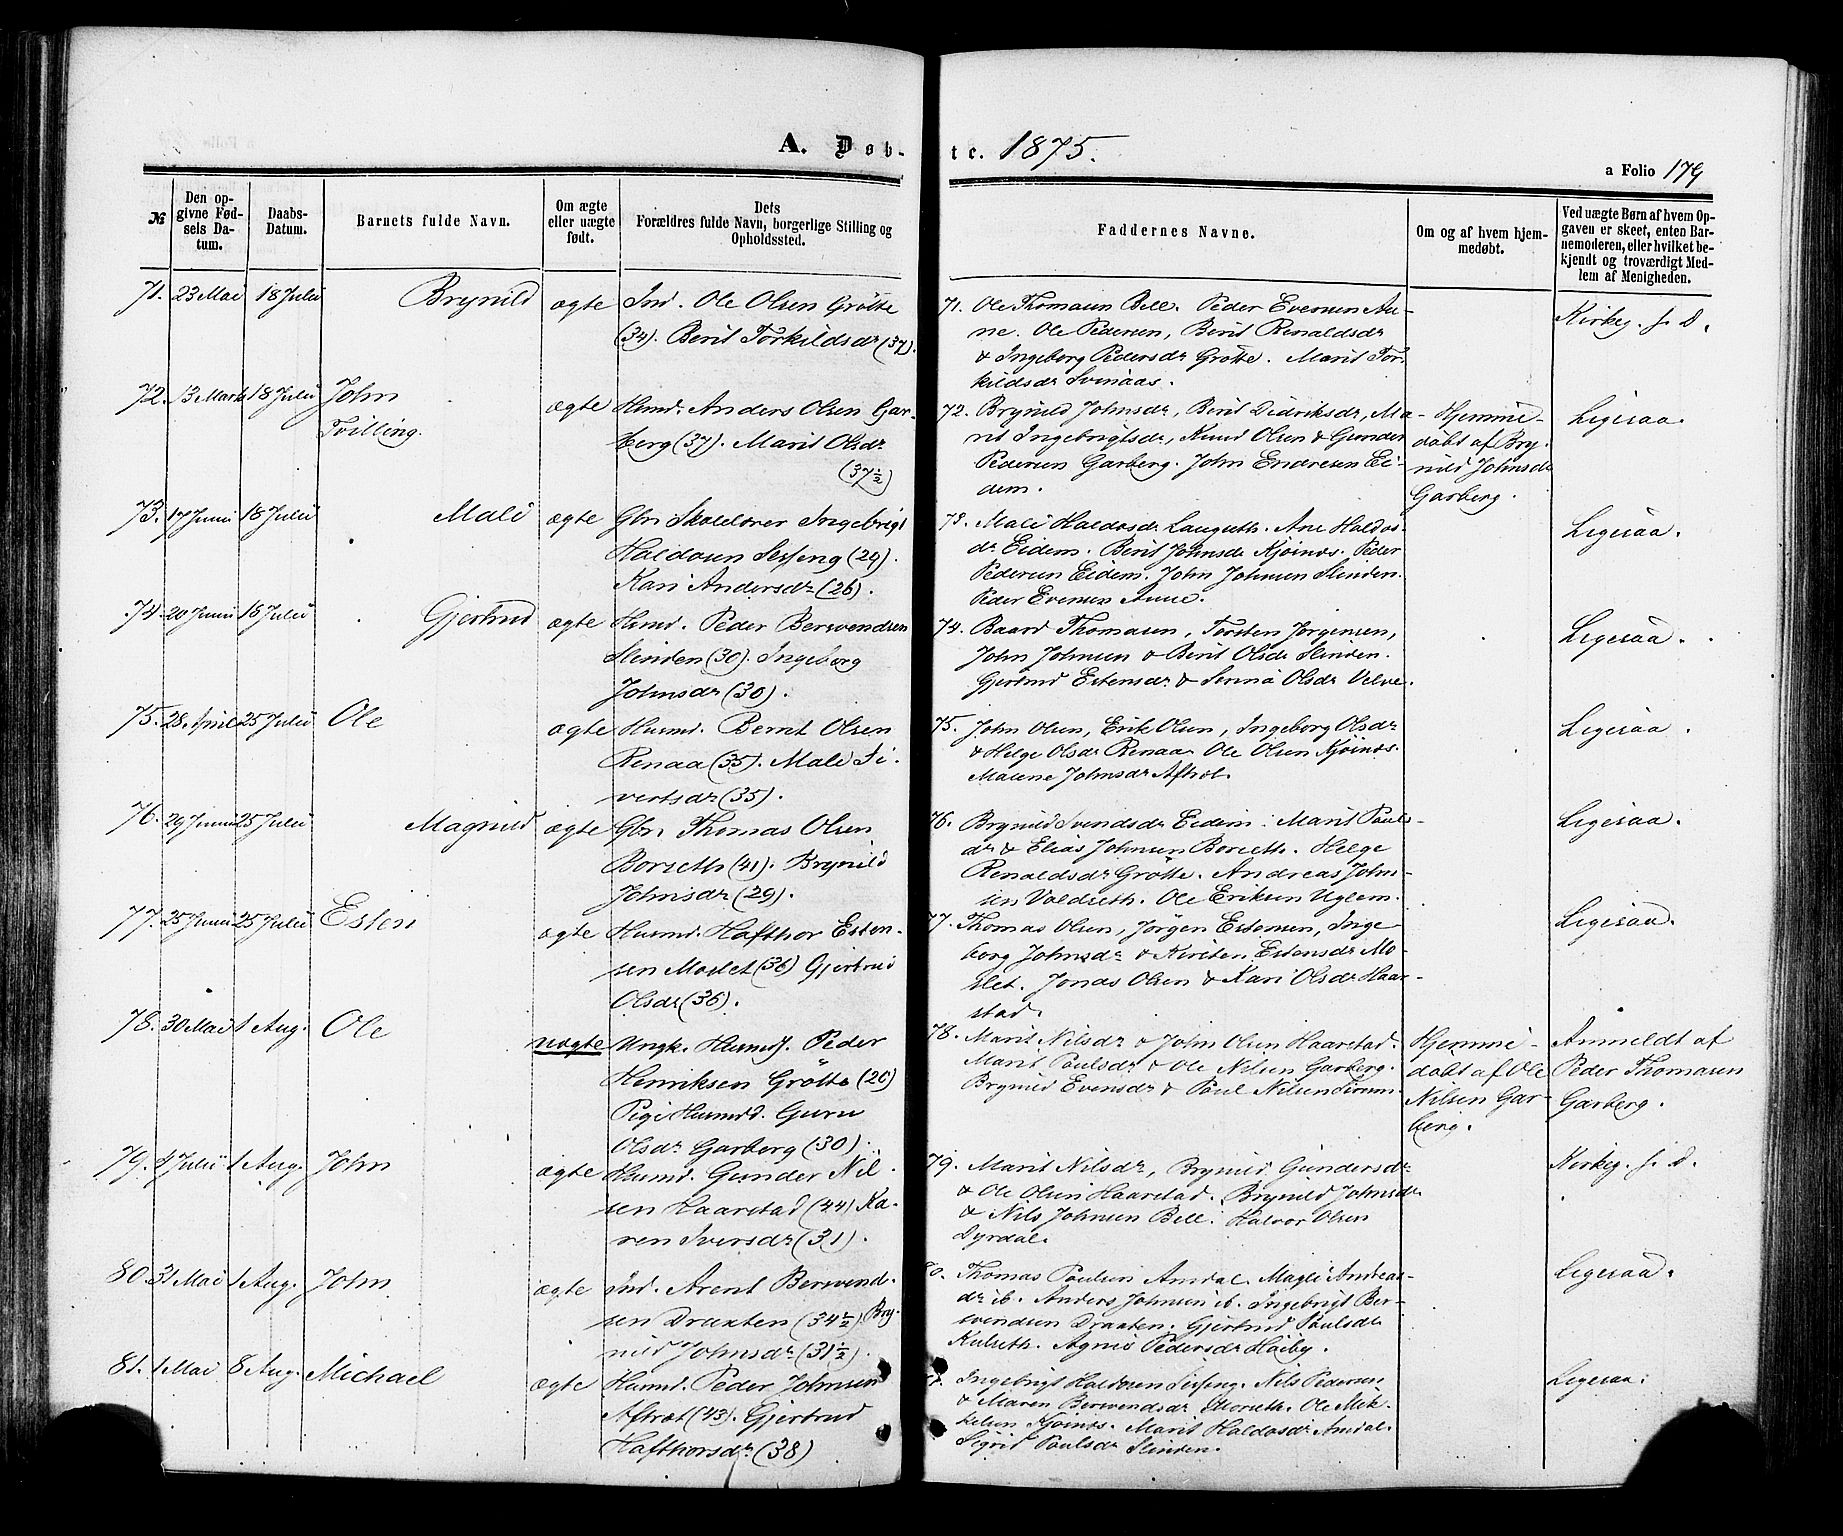 A. Døb-
te. 1875.
a Folio 179
№
Den op-
givne Fød-
sels Da-
tum.
Daabs-
Datum.
Barnets fulde Navn.
Om ægte
eller uægte
født.
Dets
Forældres fulde Navn, borgerlige Stilling og
Opholdssted.
Faddernes Navne.
Om og af hvem hjem-
medøbt.
Ved uægte Børn af hvem Op-
gaven er skeet, enten Bar-
nemoderen, eller hvilket be-
kjendt og troværdigt Med-
lem af Menigheden.
71. 23 Mai 18 Julii Brynild ægte Ind. Ole Olsen Grötte
(34). Berit Torkildsdr (37).
71. Ole Thomasen Bell. Peder Evensen Au-
ne. Ole Pedersen, Berit Renaldsdr
& Ingeborg Pedersdr Grötte. Marit Tor-
kildsdr Svinaas.
Kirkeg. s. D.
72. 13 Marts 18 Julii John ægte Husmd. Anders Olsen Gar-
Tvilling. berg (37). Marit Olsdr
(37½)
72. Brynild Johnsdr, Berit Didriksdr, Ma-
rit Ingebrigtsdr, Knud Olsen & Gunder
Pedersen Garberg. John Endresen Ei-
dem.
Hjemme-
döbt af Bry-
nild Johnsdr
Garberg.
Ligesaa.
73. 17 Junii 18 Julii Mali ægte Gbr. Skolelærer Ingebrigt
Haldosen Sesseng (24).
Kari Andersdr (26).
73. Mali Haldosdr Langseth. Ane Haldos-
dr Eidem. Berit Johnsdr Kjösnes. Peder
Pedersen Eidem. John Johnsen Slinden.
Peder Evensen Aune.
Ligesaa.
74. 20 Junii 18 Julii Gjertrud ægte Husmd. Peder Bersvendsen
Slinden (30). Ingeborg
Johnsdr (30).
74. Baard Thomasen, Torsten Jörgensen,
John Johnsen & Berit Olsdr Slinden.
Gjertrud Estensdr & Olsdr Velve.
Ligesaa.
75. 28 April 25 Julii Ole ægte Husmd. Bernt Olsen
Renaa (35). Mali Si-
vertsdr (35).
75. John Olsen, Erik Olsen, Ingeborg Olsdr
& Helge Olsdr Renaa. Ole Olsen Kjösnes.
Malene Johnsdr Aftret.
Ligesaa.
76. 29 Junii 25 Julii Magnild ægte Gbr. Thomas Olsen
Borseth (41). Brynild
Johnsdr (29).
76. Brynild Svendsdr Eidem. Marit Pauls-
dr & Elias Johnsen Borseth. Helge
Renaldsdr Grötte. Andreas John-
sen Valdseth. Ole Eriksen Uglem.
Ligesaa.
77. 25 Junii 25 Julii Esten ægte Husmd. Hafthor Esten-
sen Moslet (36) Gjertrud
Olsdr (36).
77. Thomas Olsen, Jörgen Estensen, Inge-
borg Johnsdr & Kirsten Estensdr Mo-
slet. Jonas Olsen & Kari Olsdr Haar-
stad.
Ligesaa.
78. 30 Mai 1 Aug. Ole uægte Ungk. Husmds. Peder
Henriksen Grötte (20)
Pige Husmd. Guru
Olsdr Garberg (30).
78. Marit Nilsdr & John Olsen Haarstad.
Marit Paulsdr & Ole Nilsen Garberg.
Brynild Evensdr & Paul Nilsen
Hjemme-
döbt af Ole
Nilsen Gar-
berg.
Anmeldt af
Peder Thomasen
Garberg.
79. 4 Julii 1 Aug. John ægte Husmd. Gunder Nil-
sen Haarstad (44) Ka-
ren Iversdr (31).
79. Marit Nilsdr, Brynild Gundersdr
& Ole Olsen Haarstad. Brynild Johnsdr
& Nils Johnsen Bell. Halvor Olsen
Dyrdal.
Kirkeg. s. D.
80. 31 Mai 1 Aug. John ægte Ind. Arent Bersvend-
sen Draxten (34½) Bry-
nild Johnsdr (31½).
80. Thomas Paulsen Amdal. Magli Andreas-
dr ib. Anders Johnsen ib. Ingebrigt Ber-
svendsen Draxten. Gjertrud Paulsdr
Kulseth. Agnes Pedersdr Höiby.
Ligesaa.
81. 1 Mai 8 Aug. Michael ægte Husmd. Peder Johnsen
Aftret (43). Gjertrud
Hafthorsdr (38)
Ingebrigt Haldosen Sesseng. Nils Pedersen
& Maren Bersvendsdr Morseth. Ole Mik-
kelsen Kjösnes. Marit Haldosdr Amdal.
Sigrid Paulsdr Slinden.
Ligesaa.